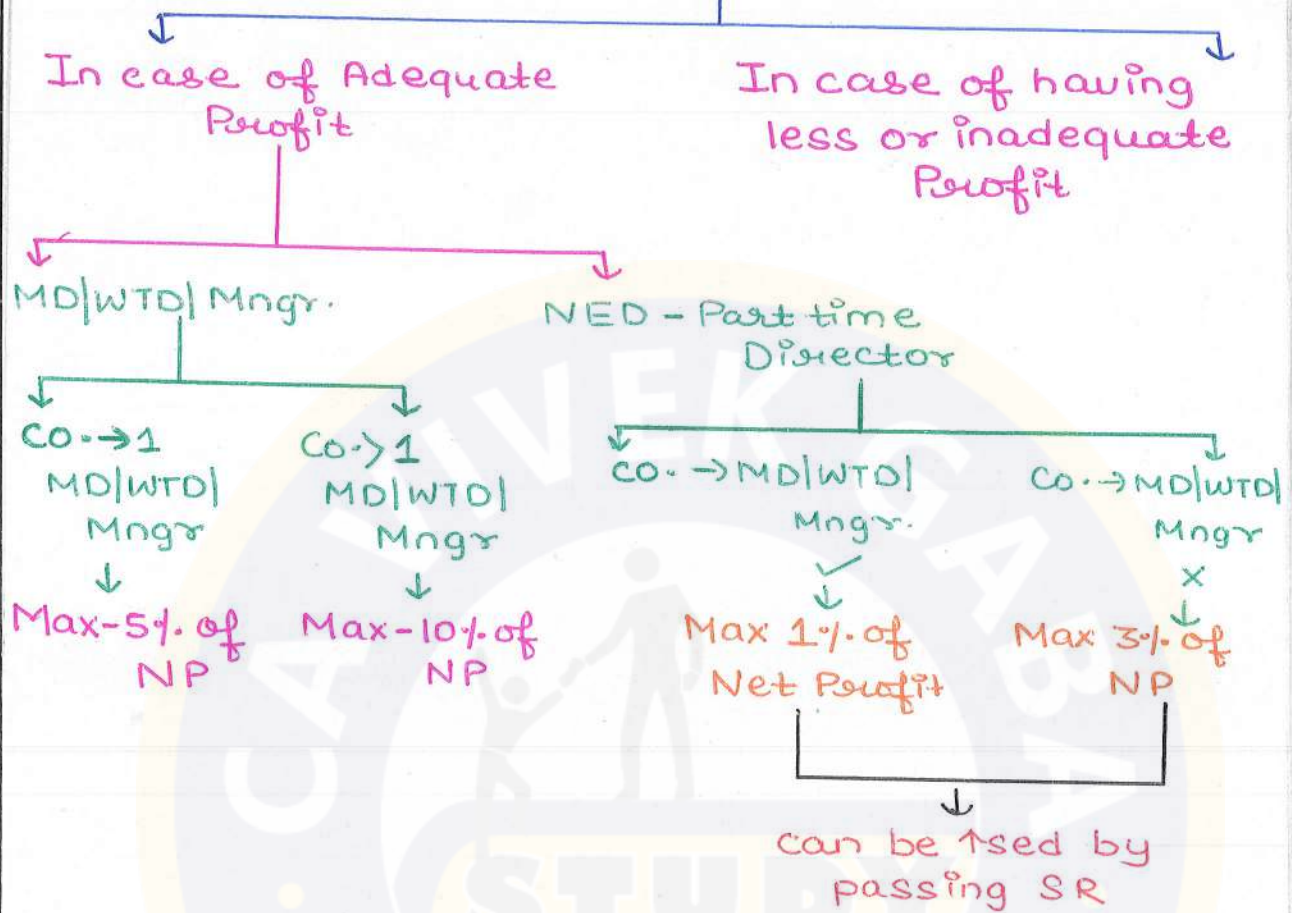 In case of Adequate
Profit
In case of having
less or inadequate
Profit
MD|WTD| Mngr.
NED - Part time
Director
Co. → 1
MD|WTD|
Mngr
↓
Max-5% of
NP
Co. > 1
MD|WTD|
Mngr
↓
Max-10% of
NP
Co. → MD|WTD|
Mngr.
✓
↓
Max 1% of
Net Profit
Co. → MD|WTD|
Mngr
×
↓
Max 3% of
NP
can be ↑sed by
passing SR
CA VIVEK GABA
STUDY